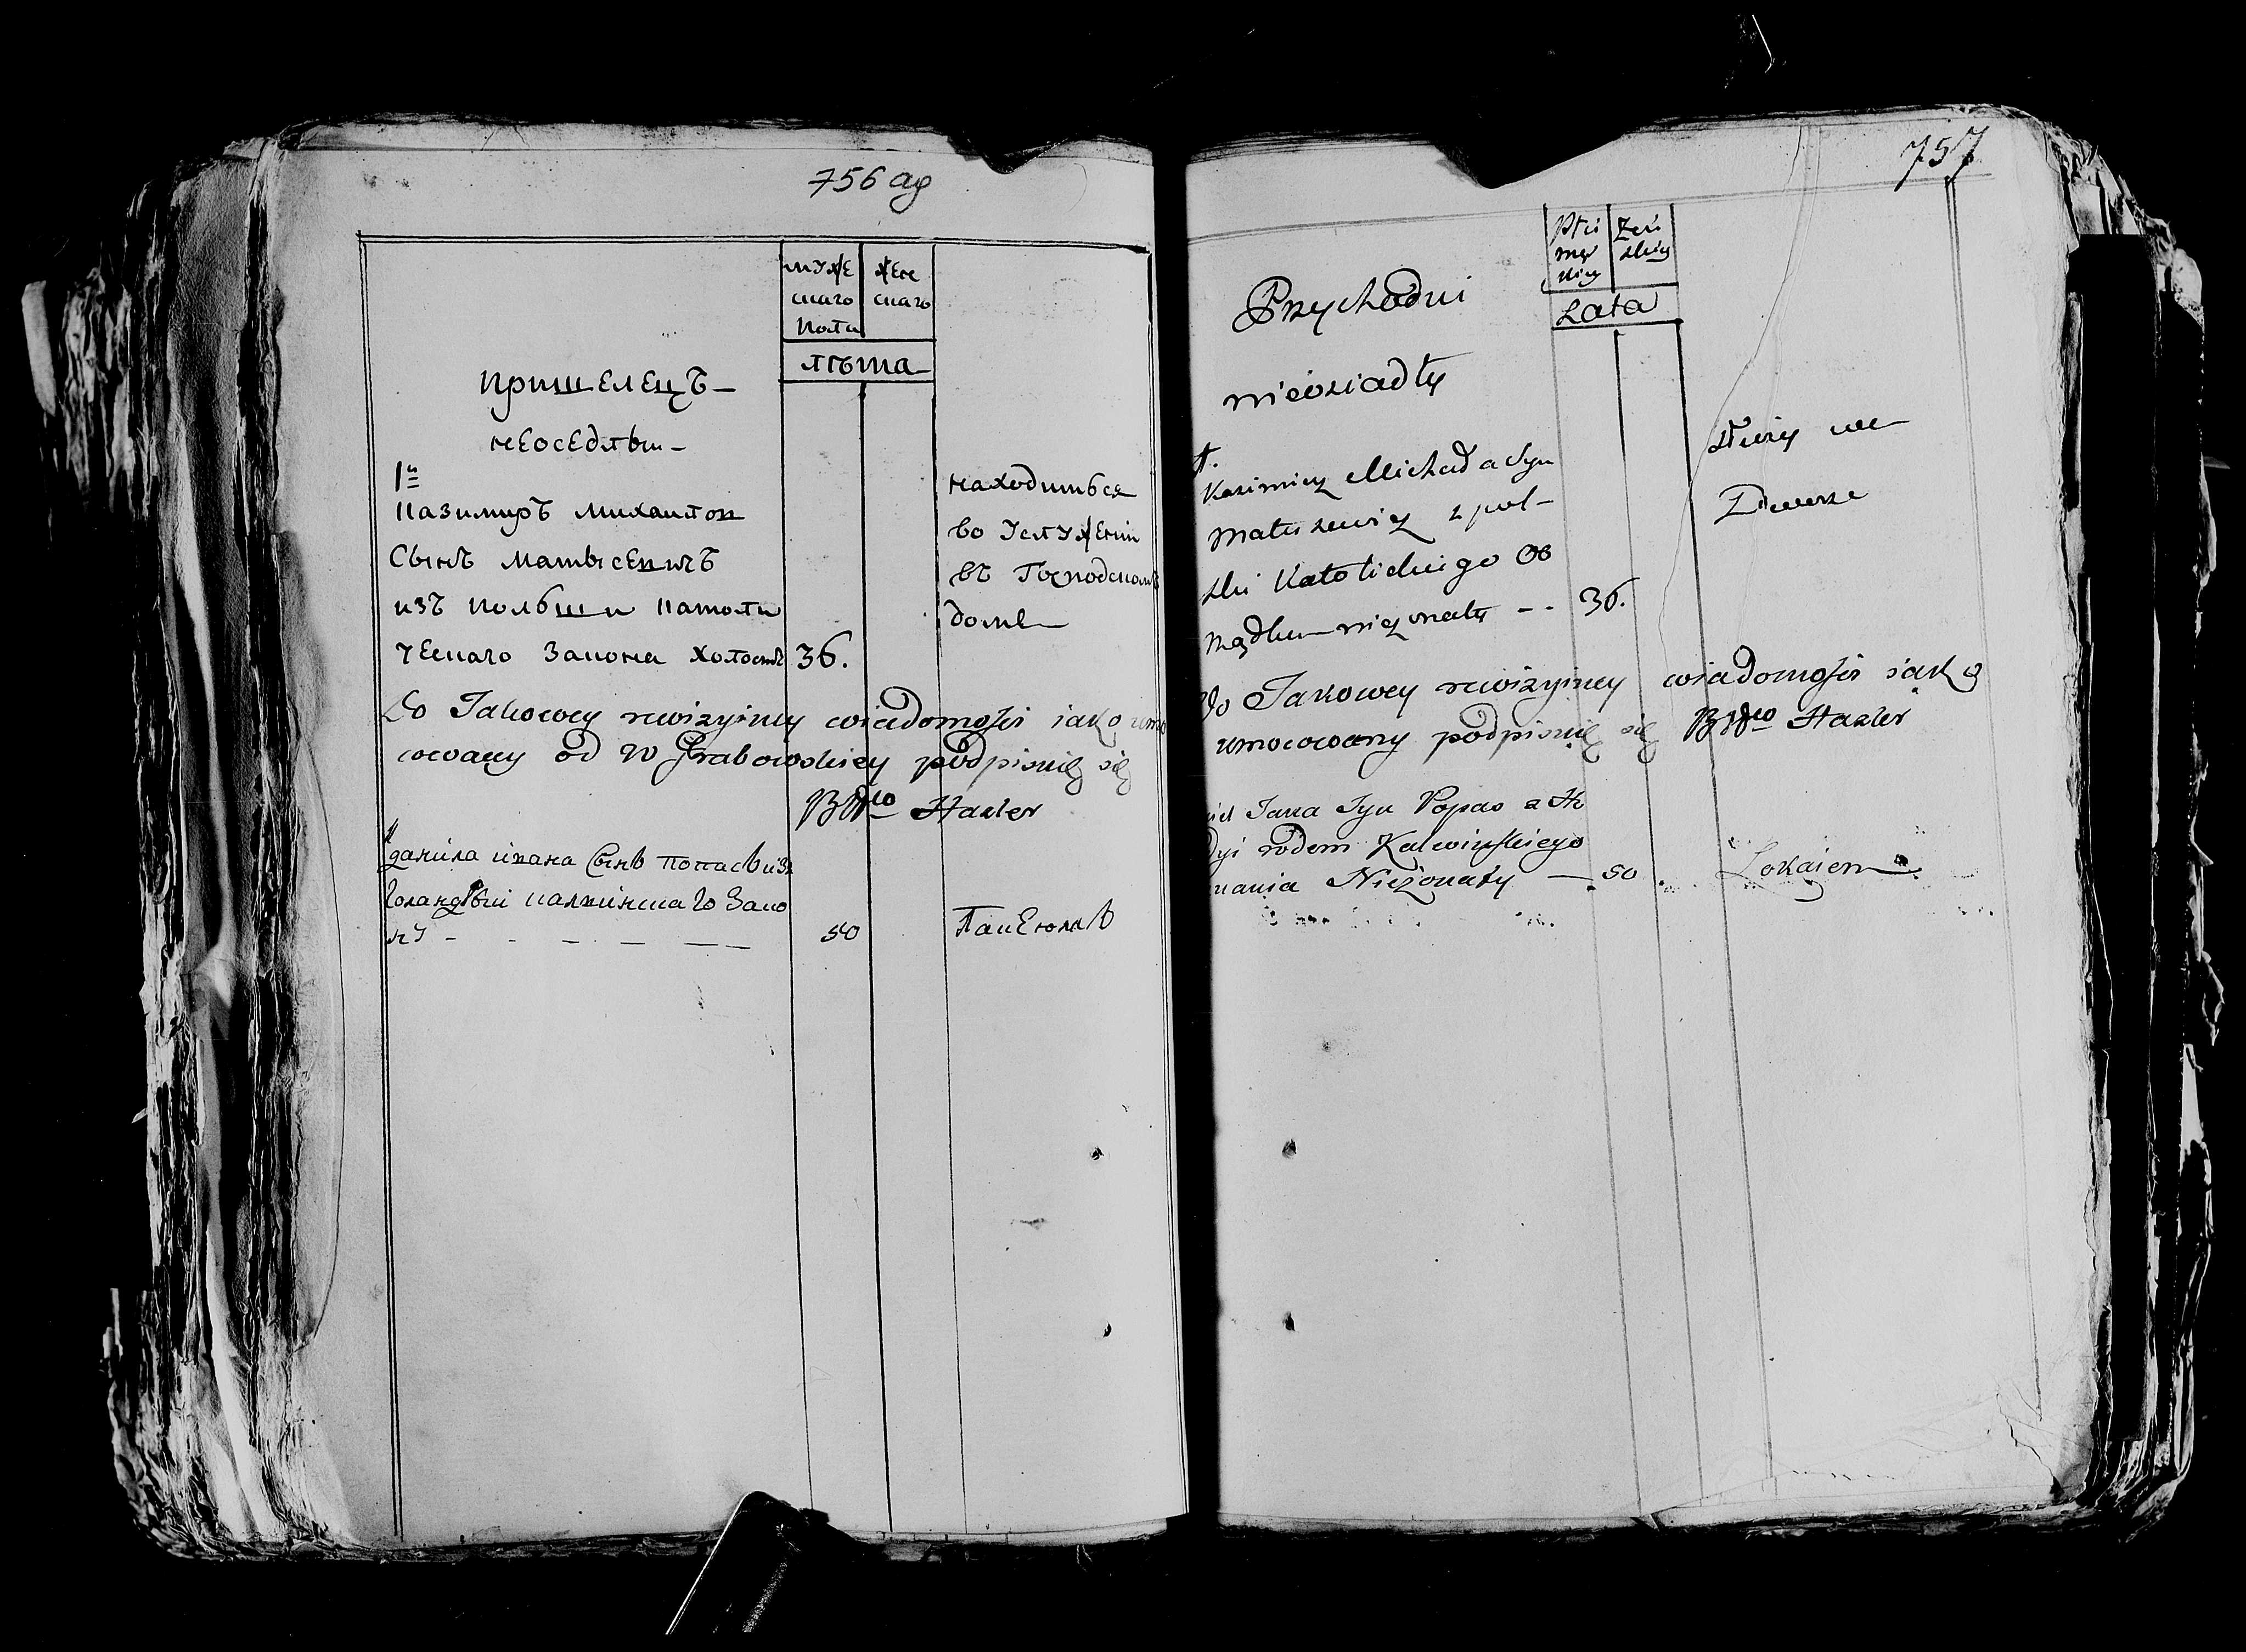 756 ag
муже
скаго
пола
жен
скаго
лѣта
пришелецъ
неоседлы
1й
Казимиръ Михайлов
сынъ Матысевичъ
изъ Польши католи
ческаго закона холостъ 36.
находиться
во услужении
въ Господскомъ
доме
Do Takowey rewizyiney wiadomości iako umo
cowany od W Grabowskiey podpisuię się
Hazler
данила ивана сынъ попасъ изъ
голандыи калвинскаго зако
ну 50
Лакеюмъ
757
Płci
męz
kiey
Zeń
skiey
Lata
Przychodni
nieosiadły
1.
Kazimierz Michała Syn
Matusewicz z pol-
ski Katolickiego Ob
rządku nieżonaty -- 36.
służy we
Dworze
Do Takowey rewizyiney wiadomości iako
umocowany podpisuię się Hazler
Jana Syn Popas z Ho
dyi rodem Kalwińskiego
nania Nieżonaty — 50
Lokaiem